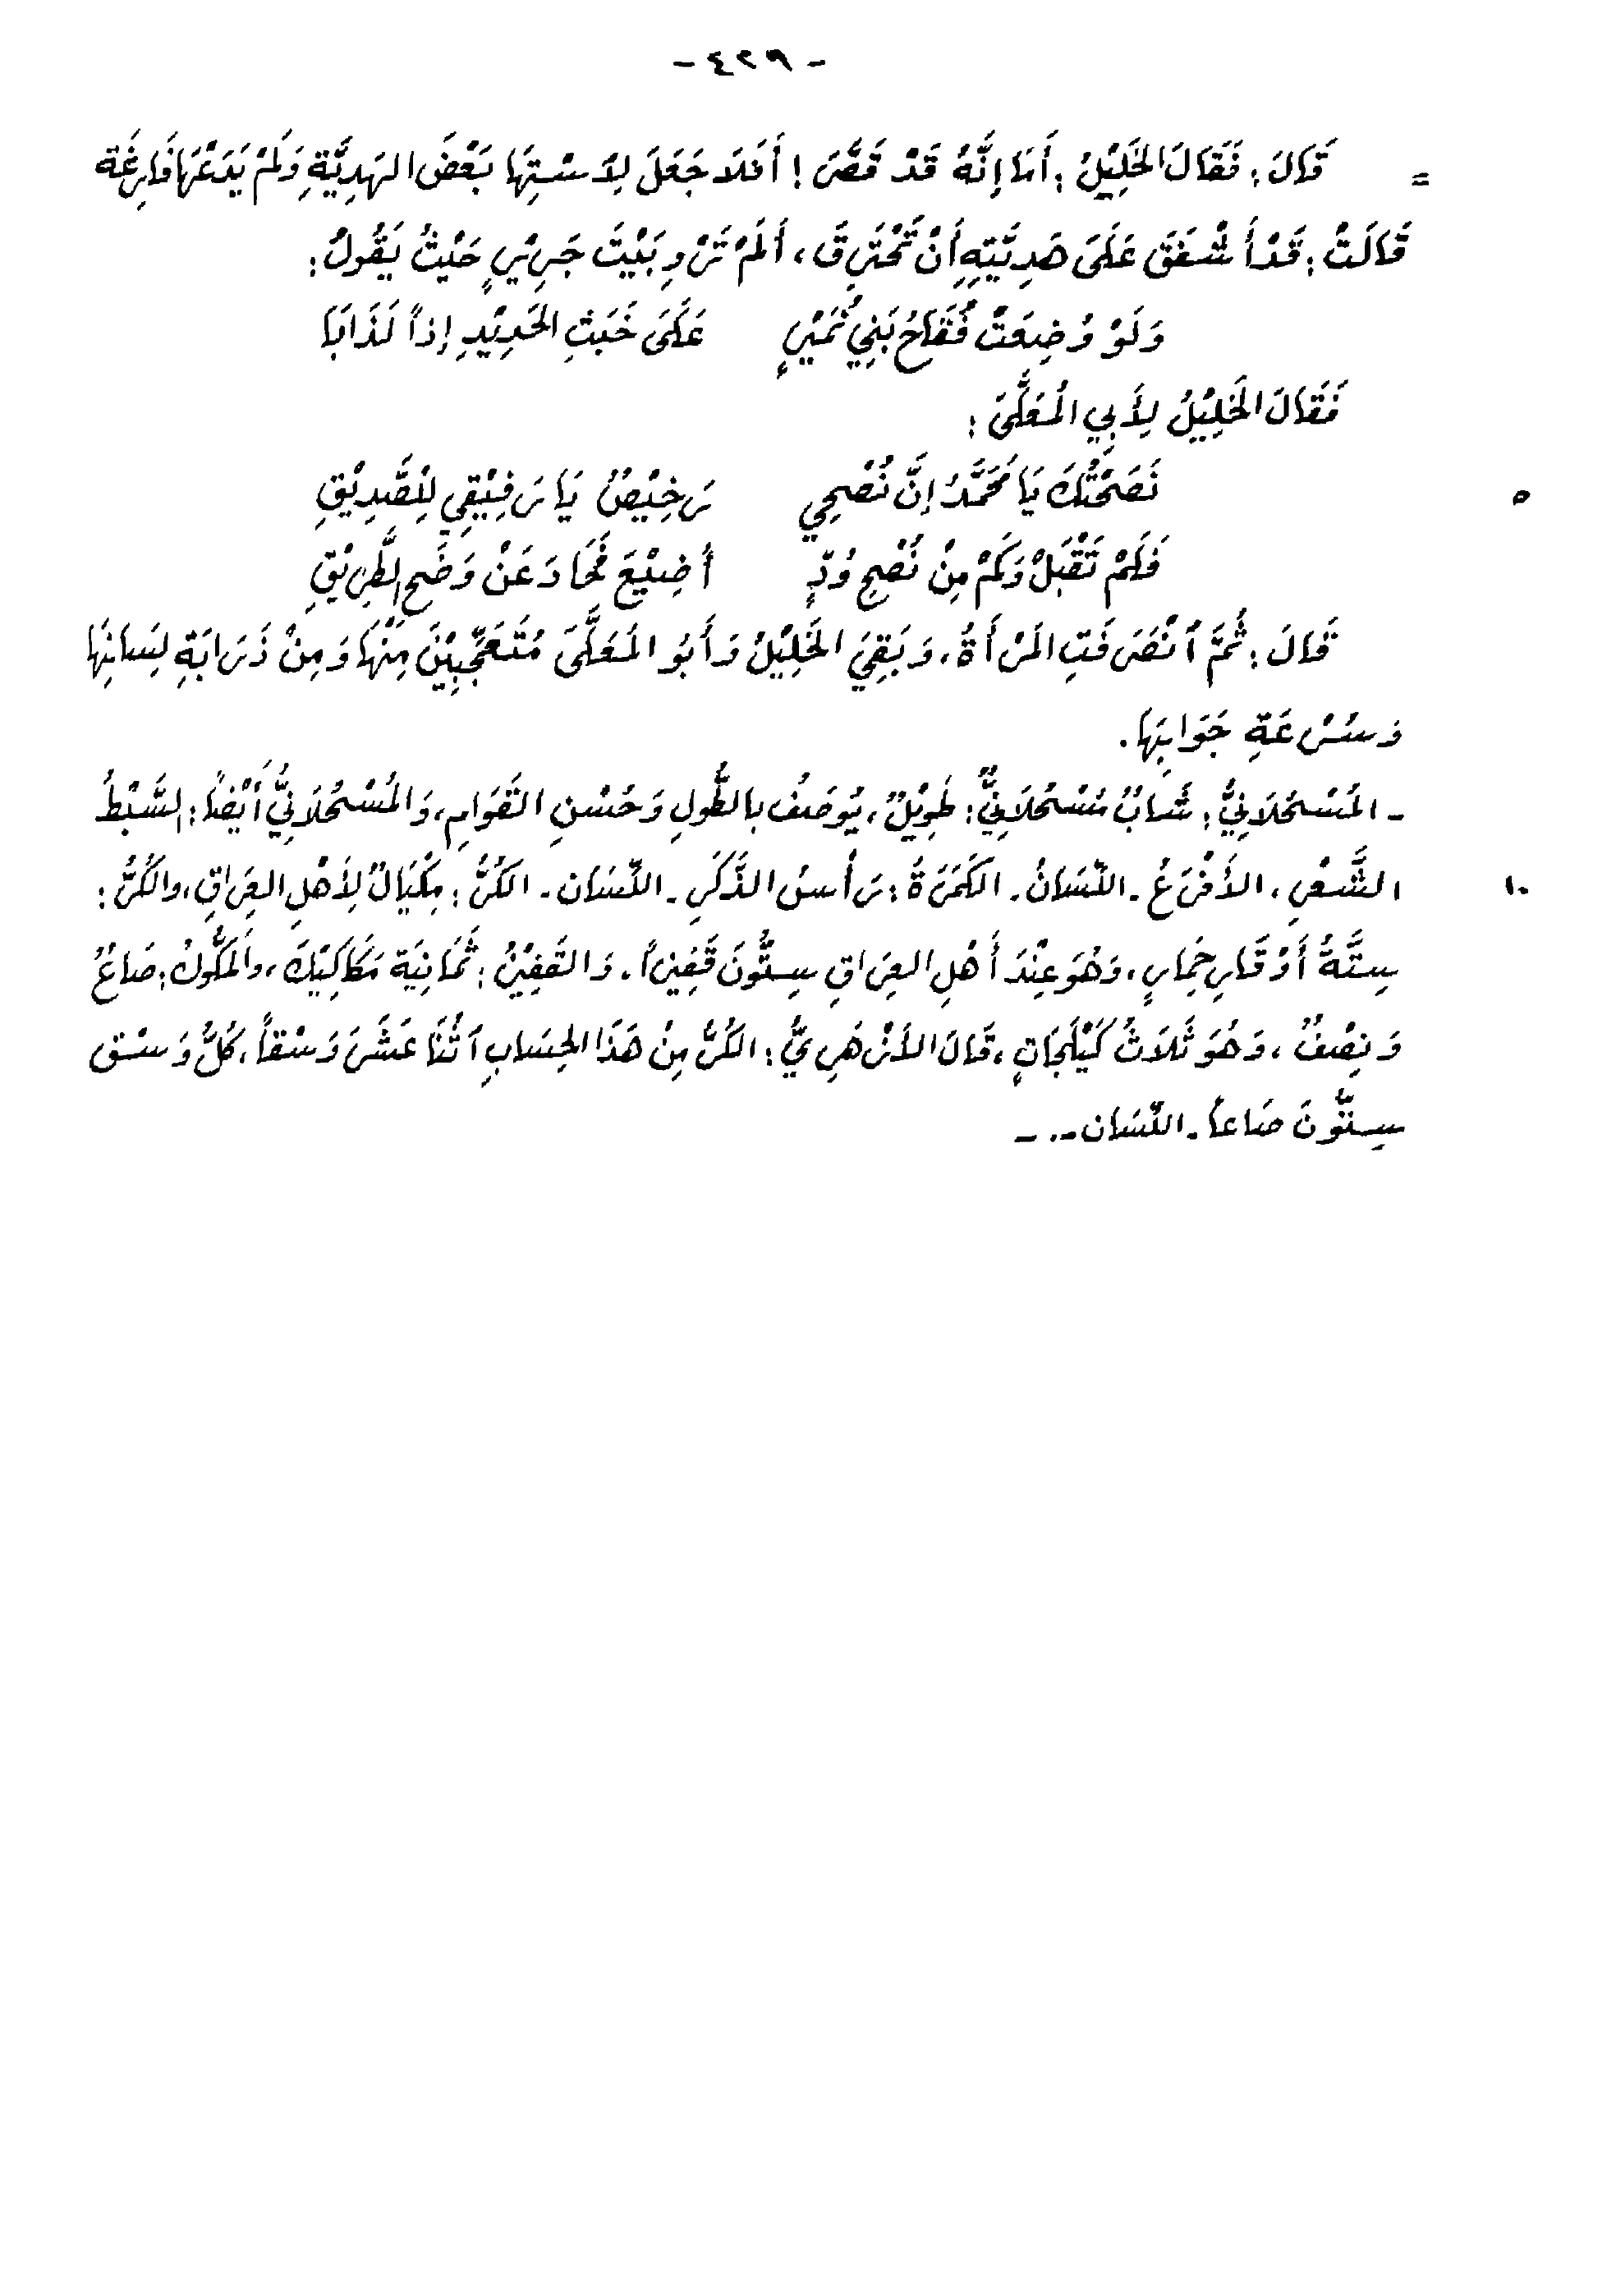 - ٤٢٩ -
= قَالَ: فَقَالَ الخَلِيْلُ: أَمَا إِنَّهُ قَدْ قَصَّرَ! أَفَلَا جَعَلَ لِاَسْتِهَا بَعْضَ الهَدِيَّةِ وَلَمْ يَدَعْهَا فَارِغَة
قَالَتْ: قَدْ أَشْفَقَ عَلَى هَدِيَّتِهِ أَنْ تَحْتَرِقَ، أَلَمْ تَرْوِ بَيْتَ جَرِيْرٍ حَيْثُ يَقُولُ:
وَلَوْ وُضِعَتْ فُقَاحُ بَنِي نُمَيْرٍ عَلَى خَبَثِ الحَدِيْدِ إِذاً لَذَابَا
فَقَالَ الخَلِيْلُ لِأَبِي المُعَلَّى:
نَصَحْتُكَ يَا مُحَمَّدُ إِنَّ نُصْحِي رَخِيْصٌ يَا رَفِيْقِي لِلصَّدِيْقِ ٥
فَلَمْ تَقْبَلْ وَكَمْ مِنْ نُصْحِ وُدٍّ أُضِيْعَ فَحَادَ عَنْ وَضَحِ الطَّرِيْقِ
قَالَ: ثُمَّ اَنْصَرَفَتِ المَرْأَةُ، وَبَقِيَ الخَلِيْلُ وَأَبُو المُعَلَّى مُتَعَجِّبِيْنَ مِنْهَا وَمِنْ ذَرَابَةِ لِسَانِهَا
وَسُرْعَةِ جَوَابِهَا.
- المُسْحُلَانِيُّ: شَابٌّ مُسْحُلَانِيٌّ: طَوِيْلٌ، يُوصَفُ بالطُّولِ وَحُسْنِ القَوَامِ، وَالمُسْحُلَانِيُّ أَيْضاً: السَّبْطُ
الشَّعْرِ، الأَفْرَعُ - اللّسَانُ - الكَمَرَةُ: رَأْسُ الذَّكَرِ - اللّسَان - الكُرُّ: مِكْيَالٌ لِأَهْلِ العِرَاقِ، والكُرُّ: ١٠
سِتَّةُ أَوْقَارِ حِمَارٍ، وَهُوَ عِنْدَ أَهْلِ العِرَاقِ سِتُّونَ قَفِيْزاً. وَالقَفِيْزُ: ثَمَانِيَة مَكَاكِيْكَ، والمَكُّوكُ: صَاعٌ
وَنِصْفٌ، وَهُوَ ثَلَاثُ كَيْلَجَاتٍ، قَالَ الأَزْهَرِيُّ: الكُرُّ مِنْ هَذَا الحِسَابِ اَثْنَا عَشَرَ وَسْقاً، كُلُّ وَسْق
سِتُّونَ صَاعاً - اللّسَان -. -